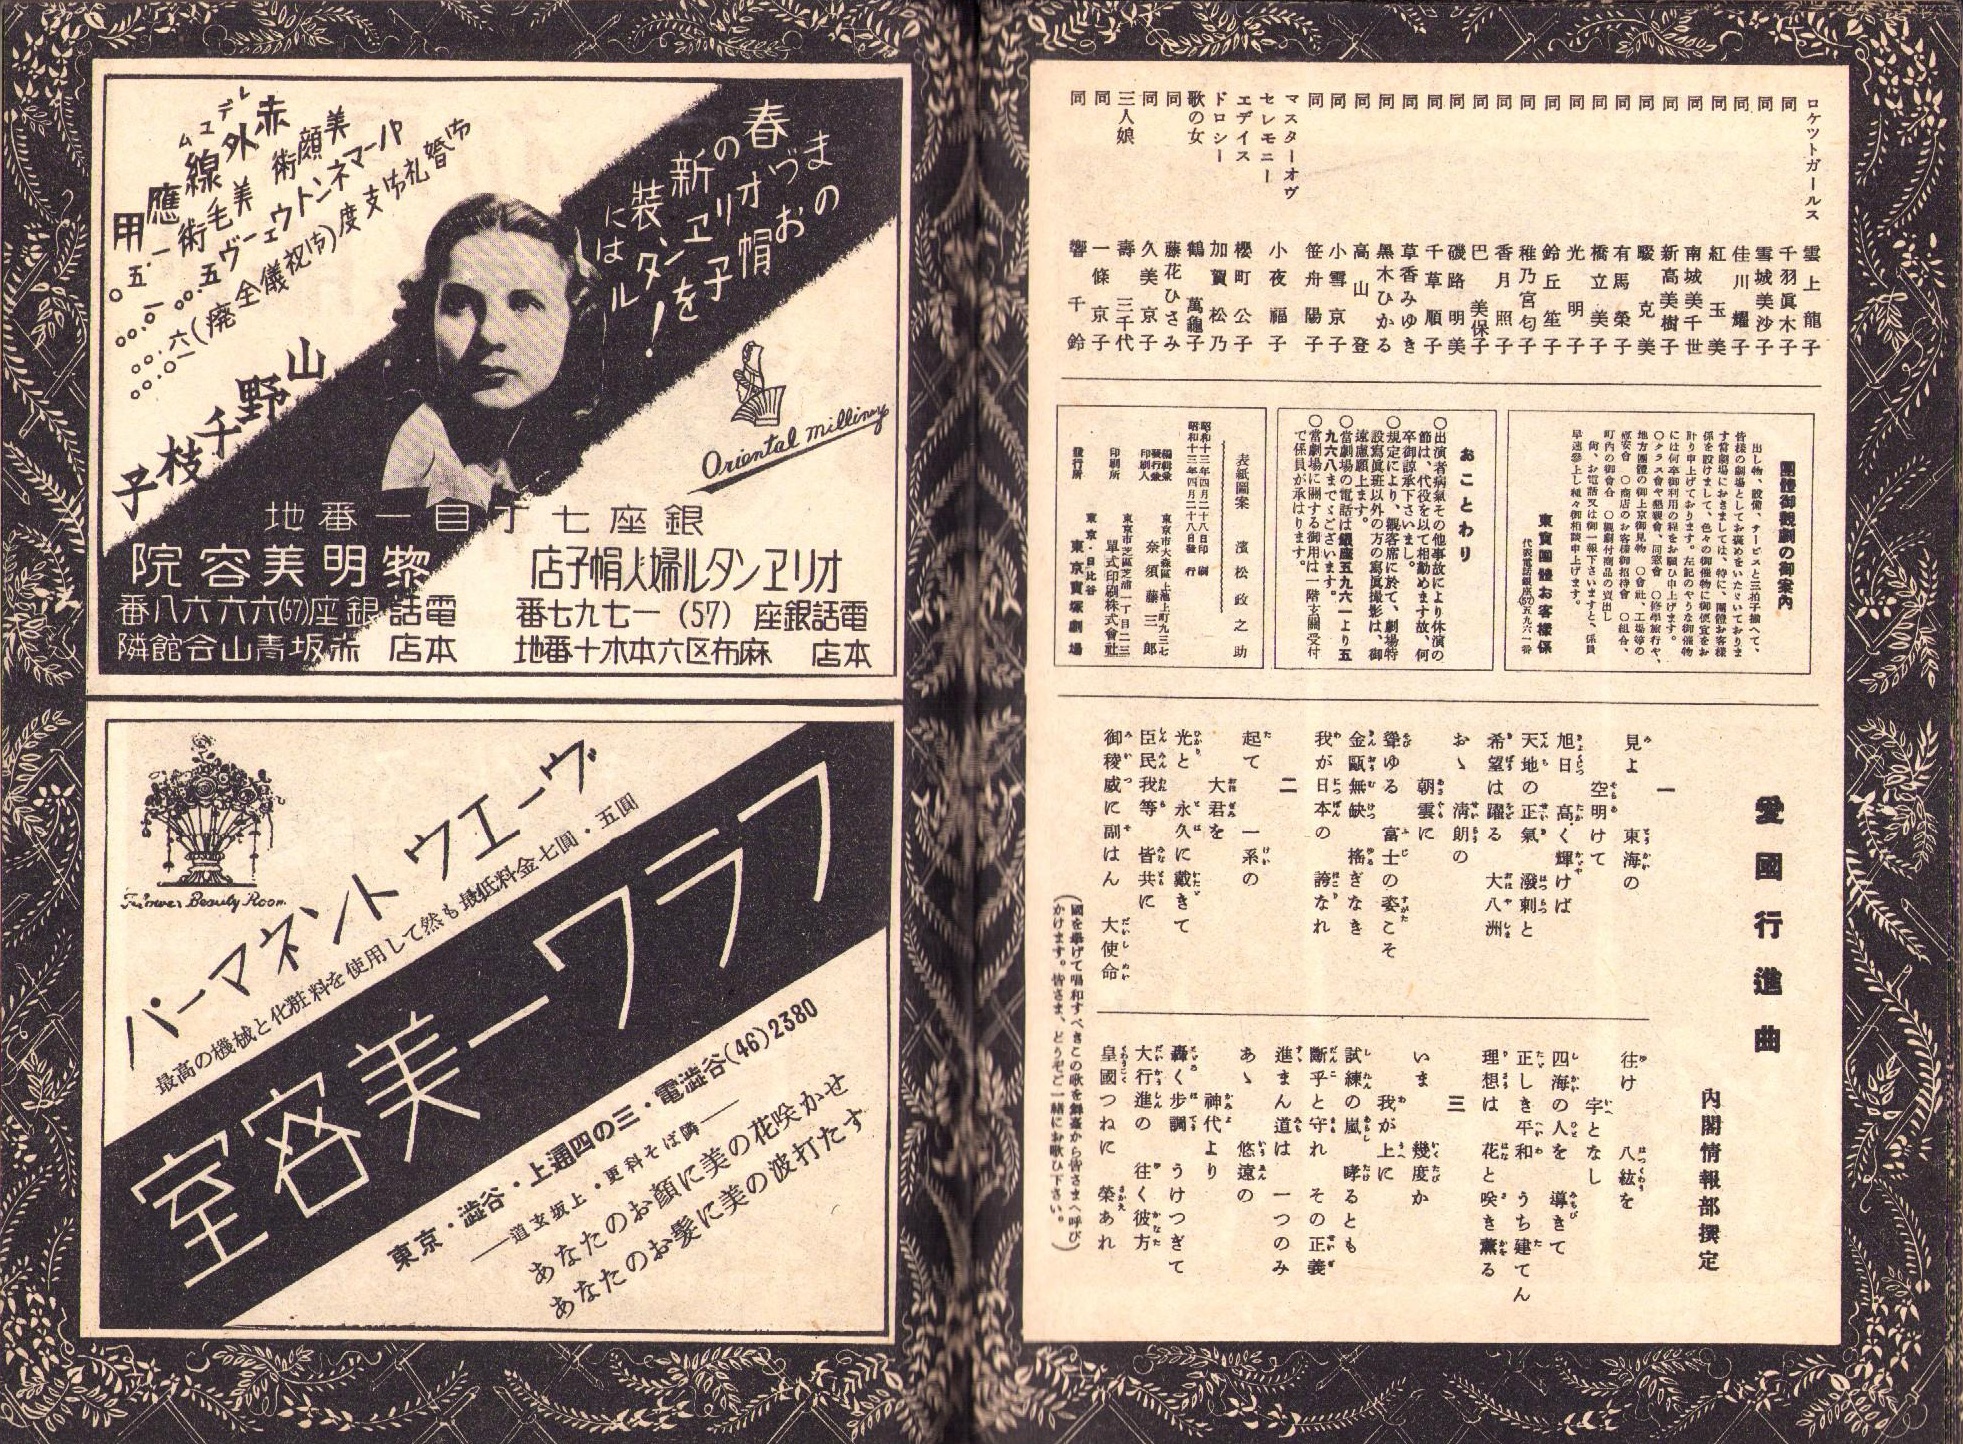 ロケツトガールス 雲上龍子
同 千羽眞木子
同 雪城美沙子
同 佳川耀子
同 紅玉美
同 南城美千世
同 新高美樹子
同 暖克美
同 有馬榮子
同 橋立美子
同 光明子
同 鈴丘笙子
同 稚乃宮匂子
同 香月照子
同 巴美保子
同 磯路明美
同 千草順子
同 草香みゆき
同 黒木ひかる
同 高山登
同 小雪京子
同 笹舟陽子
マスターオヴ
セレモニー 小夜福子
エデイス 櫻町公子
ドロシー 加賀松乃
歌の女 鶴萬龜子
同 藤花ひさみ
同 久美京子
三人娘 壽三千代
同 一條京子
同 響千鈴
團體御觀劇の御案内
出し物、設備、サービスと三拍子揃へて、
皆樣の劇場としてお褒めをいたゞいておりま
す當劇場におきましては、特に、團體お客樣
係を設けまして、色々の御催物に御便宜をお
計り申上げております。左記のやうな御催物
には何卒御利用の程をお願ひ申上げます。
○クラス會や懇親會、同窓會 ○修學旅行や、
地方團體の御上京御見物 ○會社、工場等の
慰安會 ○商店のお客樣御招待會 ○組合、
町内の御會合 ○觀劇付商品の賣出し
尚、お電話又は御一報下さいますと、係員
早速參上し種々御相談申上げます。
東寶團體お客樣係
代表電話銀座(57)五九六一番
おことわり
○出演者病氣その他事故により休演の
節は、代役を以て相勤めます故、何
卒御諒承下さいまし。
○規定により、觀客席に於て、劇場特
設寫眞班以外の方の寫眞撮影は、御
遠慮願上ます。
○當劇場の電話は銀座五九六一より五
九六八までゝございます。
○當劇場に關する御用は一階玄關受付
で係員が承はります。
表紙圖案 濱松政之助
昭和十三年四月二十八日印刷
昭和十三年四月二十八日發行
東京市大森區上池上町九三七
編輯兼
發行兼
印刷人 奈須藤三郎
東京市芝區芝浦一丁目二三
印刷所 單式印刷株式會社
東京・日比谷
發行所 東京寶塚劇場
愛國行進曲
内閣情報部撰定
一
見よ 東海の
空明けて
旭日 高く輝けば
天地の正氣 潑剌と
希望は躍る 大八洲
おゝ 淸朗の
朝雲に
聳ゆる 富士の姿こそ
金甌無缺 搖ぎなき
我が日本の 誇なれ
二
起て 一系の
大君を
光と 永久に戴きて
臣民我等 皆共に
御稜威に副はん 大使命
往け 八紘を
宇となし
四海の人を 導きて
正しき平和 うち建てん
理想は 花と咲き薫る
三
いま 幾度か
我が上に
試練の嵐 哮るとも
斷乎と守れ その正義
進まん道は 一つのみ
あゝ 悠遠の
神代より
轟く步調 うけつぎて
大行進の 往く彼方
皇國つねに 榮あれ
(國を擧げて唱和すべきこの歌を舞臺から皆さまへ呼び
かけます。皆さま、どうぞご一緒にお歌ひ下さい。)
まの
春づお
のオ帽
新リ子
装ヱを
にンタ
はル！
御婚礼御支度(御祝儀全廃)六.〇〇
パーマネントウェーヴ 五.〇〇
美顔術 美毛術 一.〇〇
赤外線應用 五〇
レデユム
山野千枝子
Oriental millinery
銀座七丁目一番地
オリヱンタル婦人帽子店
電話銀座(57)一七九七番
本店 麻布区六本木十番地
黎明美容院
電話銀座(57)六六六八番
本店 赤坂青山会館隣
Flower Beauty Room
パーマネント ウエーヴ
最高の機械と化粧料を使用して然も最低料金七圓・五圓
フラワー美容室
東京・澁谷・上通四の三・電澁谷(46)2380
——道玄坂上・更科そば隣——
あなたのお顔に美の花咲かせ
あなたのお髪に美の波打たす